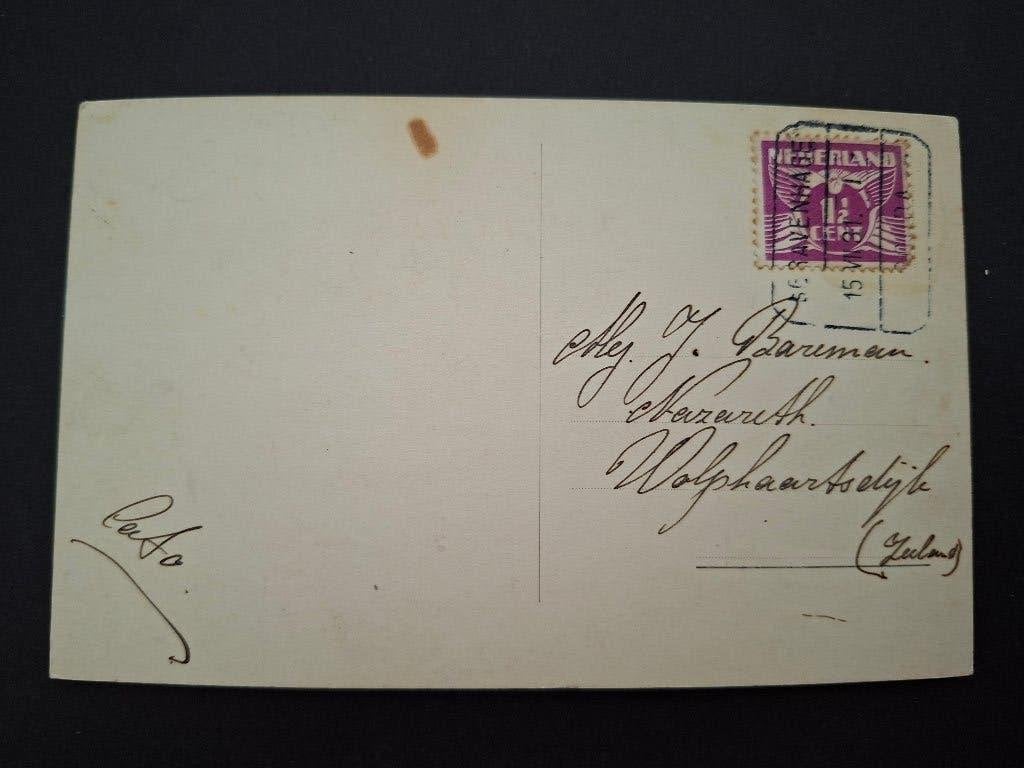 NEDERLAND
1½
CENT
'S GRAVENHAGE
15.VII.31.
Mej. J. Bareman.
Nazareth.
Wolphaartsdijk
(Zeeland)
Cato.